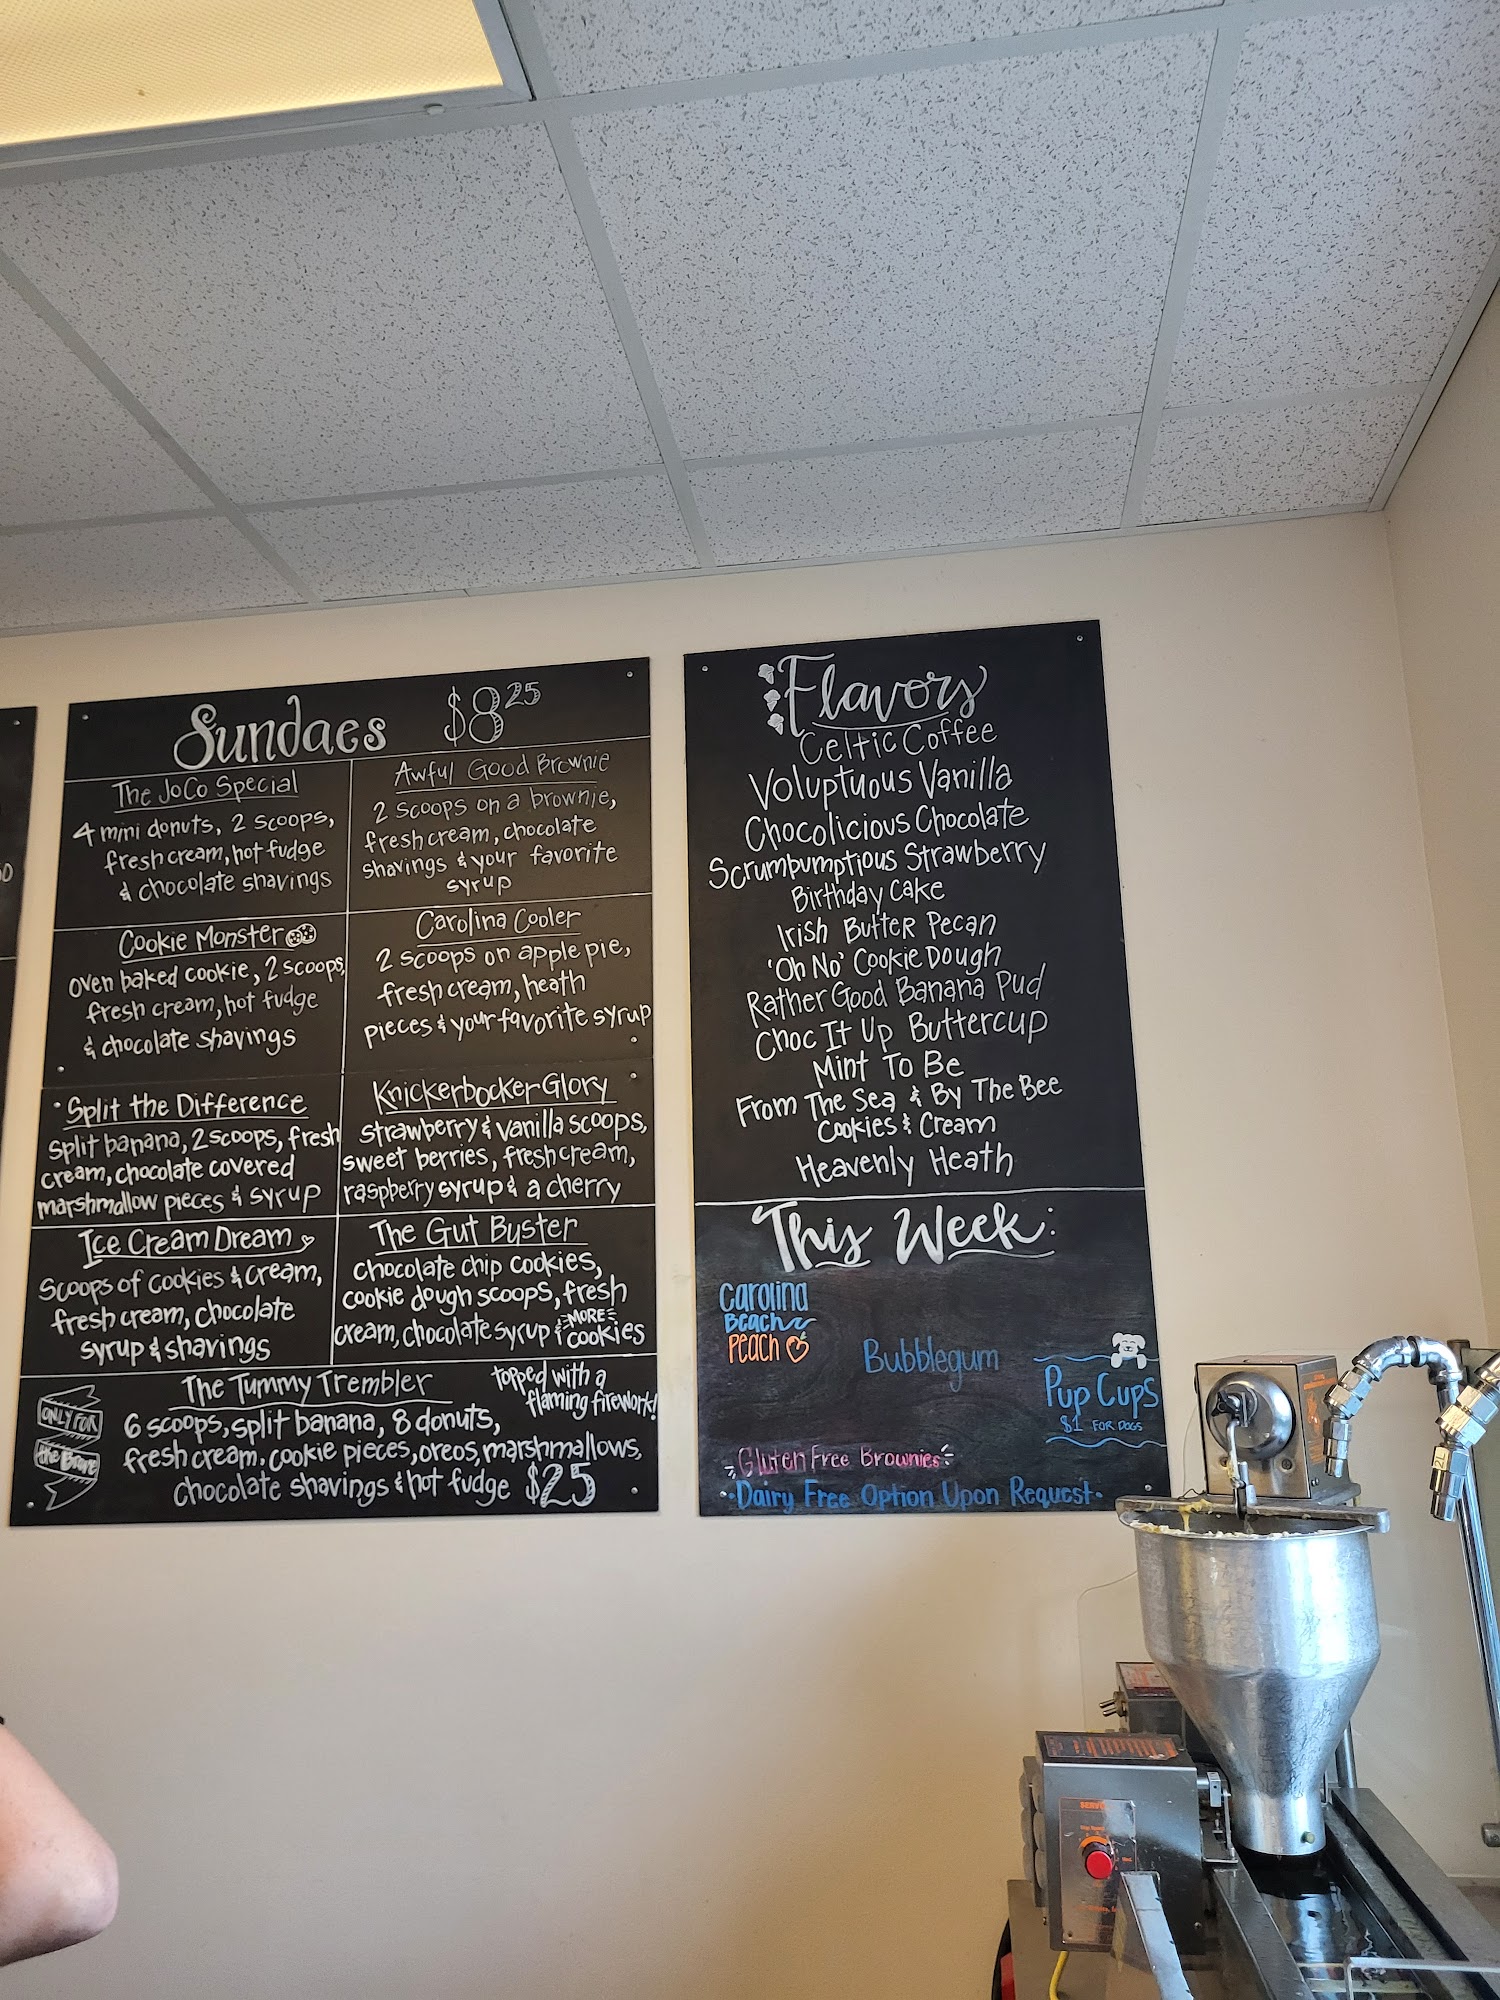 Sundaes $8.25
The JoCo Special
4 mini donuts, 2 scoops,
fresh cream, hot fudge
& chocolate shavings
Awful Good Brownie
2 scoops on a brownie,
fresh cream, chocolate
shavings & your favorite
syrup
Cookie Monster
oven baked cookie, 2 scoops,
fresh cream, hot fudge
& chocolate shavings
Carolina Cooler
2 scoops on apple pie,
fresh cream, heath
pieces & your favorite syrup
Split the Difference
split banana, 2 scoops, fresh
cream, chocolate covered
marshmallow pieces & syrup
Knickerbocker Glory
strawberry & vanilla scoops,
sweet berries, fresh cream,
raspberry syrup & a cherry
Ice Cream Dream
Scoops of cookies & cream,
fresh cream, chocolate
syrup & shavings
The Gut Buster
chocolate chip cookies,
cookie dough scoops, fresh
cream, chocolate syrup & MORE cookies
ONLY FOR
the Brave
The Tummy Trembler
topped with a
flaming firework!
6 scoops, split banana, 8 donuts,
fresh cream, cookie pieces, oreos, marshmallows,
chocolate shavings & hot fudge $25
Flavors
Celtic Coffee
Voluptuous Vanilla
Chocolicious Chocolate
Scrumpumptious Strawberry
Birthday Cake
Irish Butter Pecan
'Oh No' Cookie Dough
Rather Good Banana Pud
Choc It Up Buttercup
Mint To Be
From The Sea & By The Bee
Cookies & Cream
Heavenly Heath
This Week:
Carolina
Beach
Peach
Bubblegum
Pup Cups
$1 FOR DOGS
Gluten Free Brownies
Dairy Free Option Upon Request